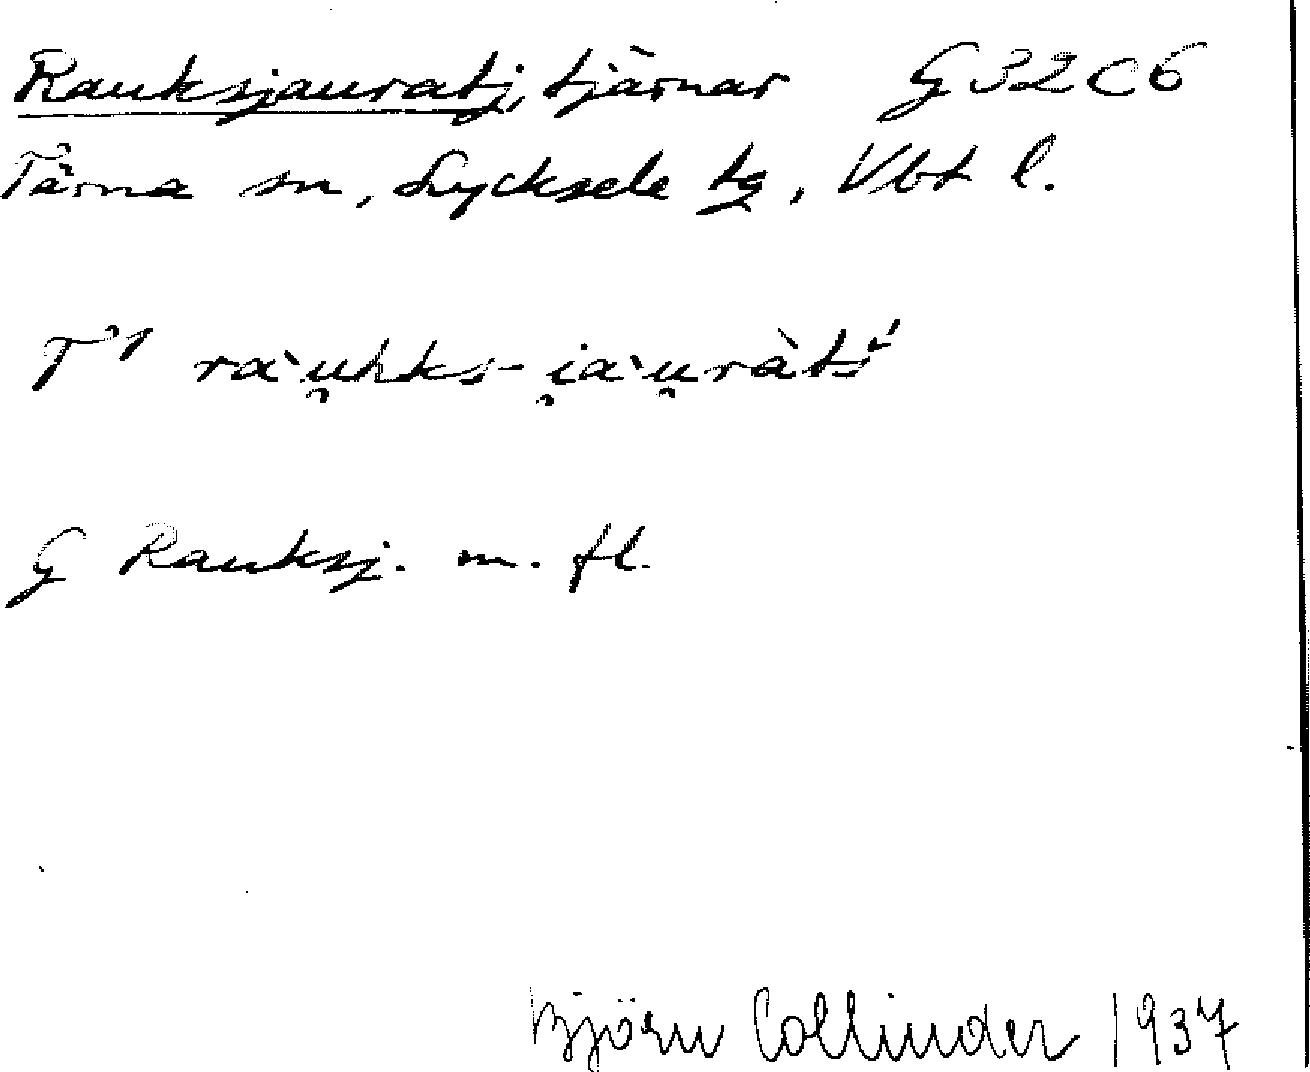 Rauksjauratj, tjärnar G32C6
Tärna sn, Lycksele tg, Vbt l.
T1 ràu̯hks-i̯àu̯ràtś
G Rauksj. m. fl.
Björn Collinder 1937